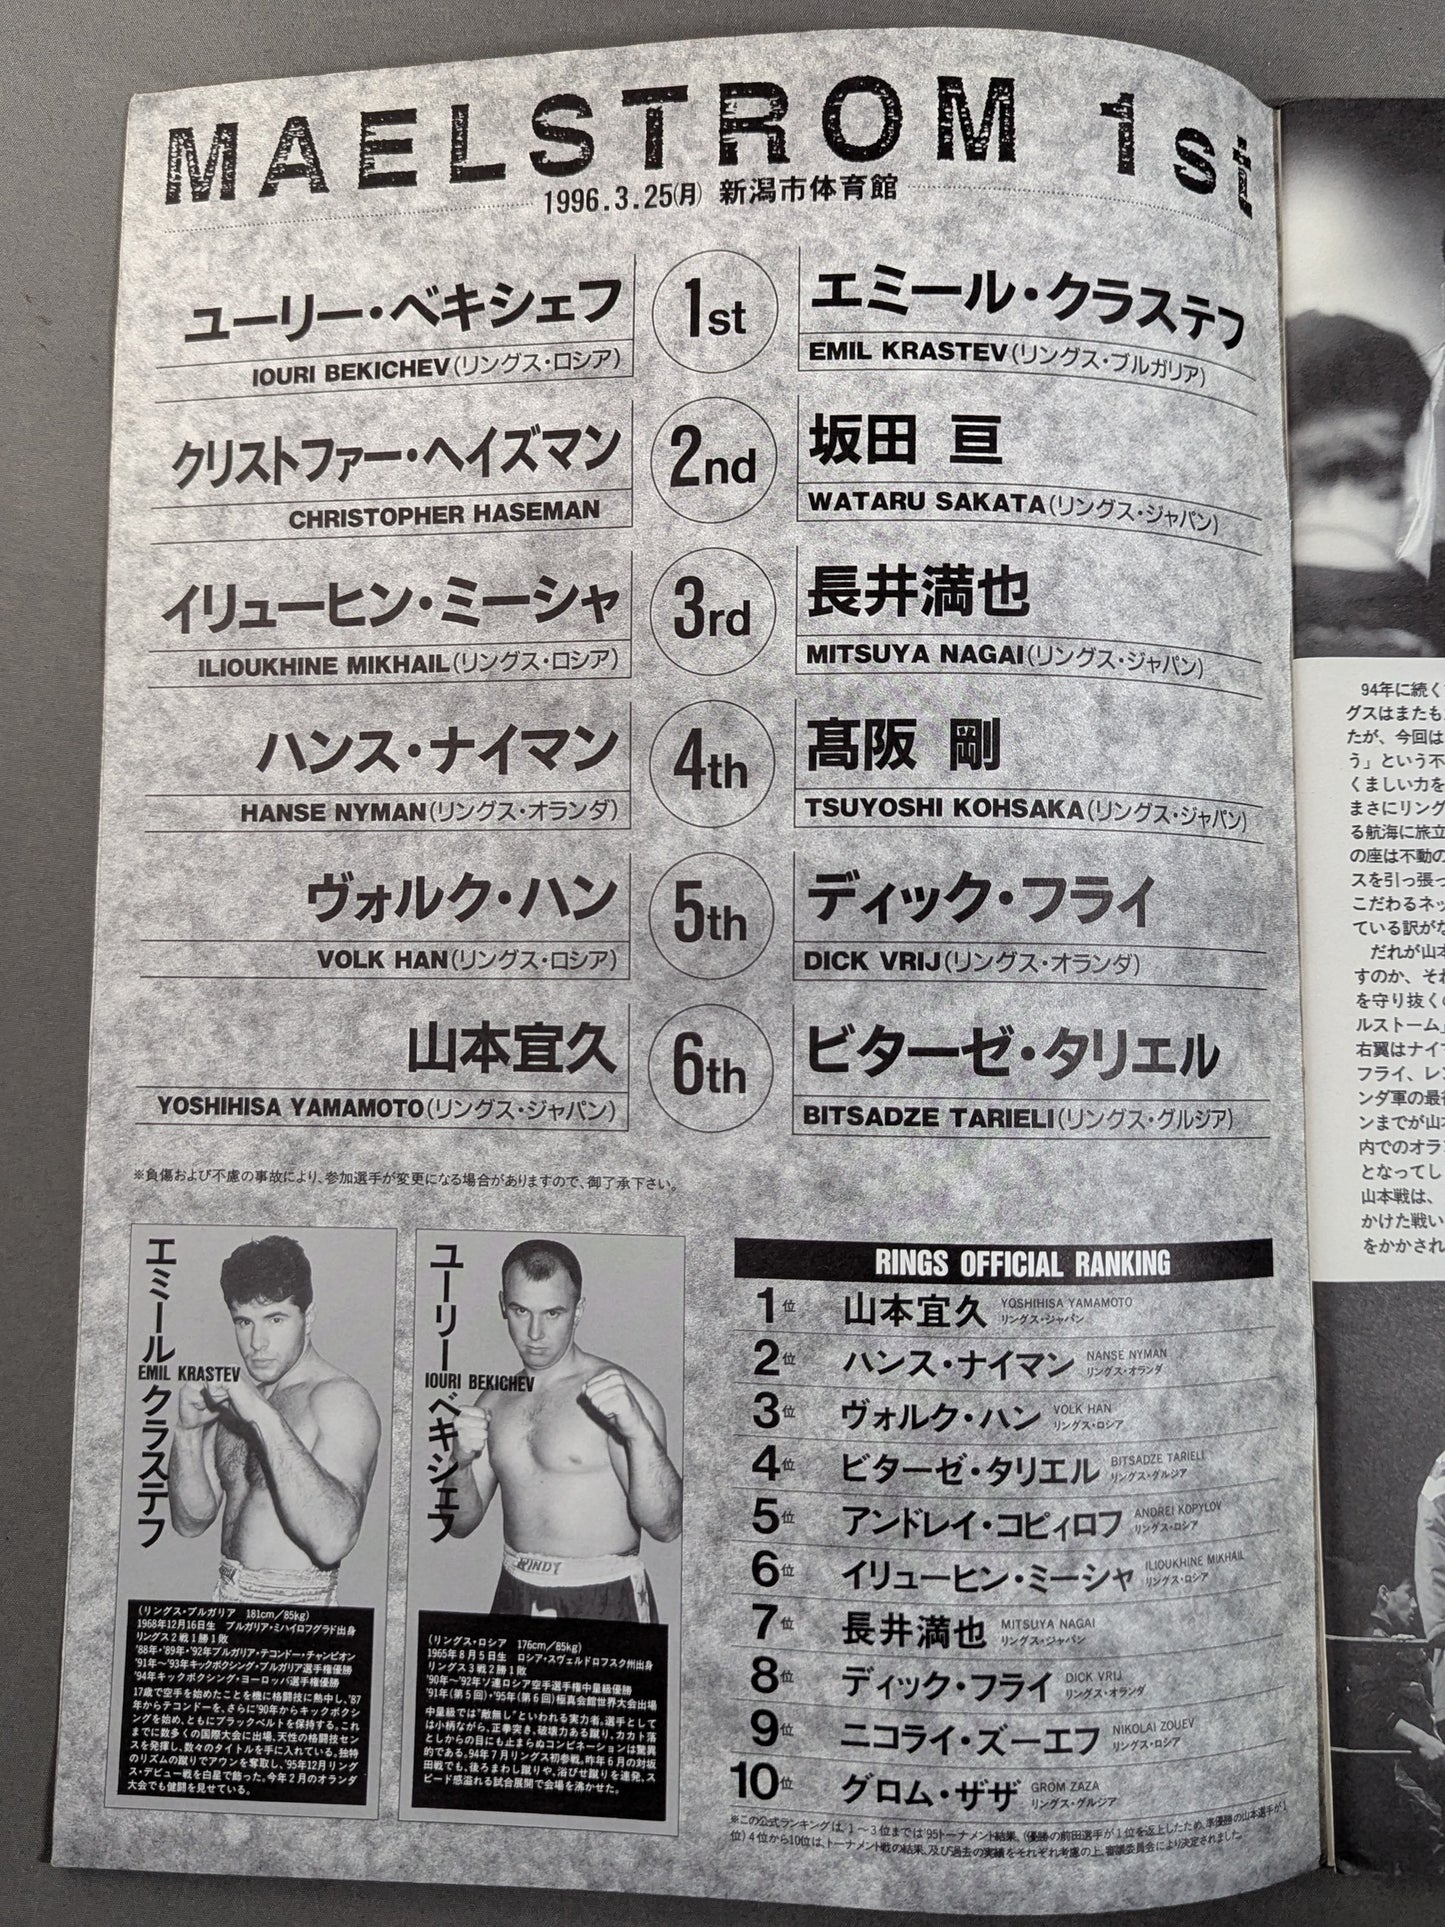 MAELSTROM 1st
1996.3.25(月) 新潟市体育館
ユーリー・ベキシェフ
IOURI BEKICHEV(リングス・ロシア)
1st
エミール・クラステフ
EMIL KRASTEV(リングス・ブルガリア)
クリストファー・ヘイズマン
CHRISTOPHER HASEMAN
2nd
坂田 亘
WATARU SAKATA(リングス・ジャパン)
イリューヒン・ミーシャ
ILIOUKHINE MIKHAIL(リングス・ロシア)
3rd
長井満也
MITSUYA NAGAI(リングス・ジャパン)
ハンス・ナイマン
HANSE NYMAN(リングス・オランダ)
4th
髙阪 剛
TSUYOSHI KOHSAKA(リングス・ジャパン)
ヴォルク・ハン
VOLK HAN(リングス・ロシア)
5th
ディック・フライ
DICK VRIJ(リングス・オランダ)
山本宜久
YOSHIHISA YAMAMOTO(リングス・ジャパン)
6th
ビターゼ・タリエル
BITSADZE TARIELI(リングス・グルジア)
※負傷および不慮の事故により、参加選手が変更になる場合がありますので、御了承下さい。
エミール・クラステフ
EMIL KRASTEV
(リングス・ブルガリア 181cm/85kg)
1968年12月16日生 ブルガリア・ミハイロフグラド出身
リングス2戦1勝1敗
'88年・'89年・'92年ブルガリア・テコンドー・チャンピオン
'91年〜'93年キックボクシング・ブルガリア選手権優勝
'94年キックボクシング・ヨーロッパ選手権優勝
17歳で空手を始めたことを機に格闘技に熱中し、'87
年からテコンドーを、さらに'90年からキックボクシ
ングを始め、ともにブラックベルトを保持する。これ
までに数多くの国際大会に出場、天性の格闘技セン
スを発揮し、数々のタイトルを手に入れている。独特
のリズムの蹴りでアウンを奪取し、'95年12月リング
ス・デビュー戦を白星で飾った。今年2月のオランダ
大会でも健闘を見せている。
ユーリー・ベキシェフ
IOURI BEKICHEV
(リングス・ロシア 176cm/85kg)
1965年8月5日生 ロシア・スヴェルドロフスク州出身
リングス3戦2勝1敗
'90年〜'92年ソ連ロシア空手選手権中量級優勝
'91年(第5回)・'95年(第6回)極真会館世界大会出場
中量級では"敵無し"といわれる実力者。選手として
は小柄ながら、正拳突き、破壊力ある蹴り、カカト落
としからの目にも止まらぬコンビネーションは驚異
的である。94年7月リングス初参戦。昨年6月の対坂
田戦でも、後ろまわし蹴りや、浴びせ蹴りを連発、ス
ピード感溢れる試合展開で会場を沸かせた。
RINGS OFFICIAL RANKING
1位 山本宜久 YOSHIHISA YAMAMOTO リングス・ジャパン
2位 ハンス・ナイマン NANSE NYMAN リングス・オランダ
3位 ヴォルク・ハン VOLK HAN リングス・ロシア
4位 ビターゼ・タリエル BITSADZE TARIELI リングス・グルジア
5位 アンドレイ・コピィロフ ANDREI KOPYLOV リングス・ロシア
6位 イリューヒン・ミーシャ ILIOUKHINE MIKHAIL リングス・ロシア
7位 長井満也 MITSUYA NAGAI リングス・ジャパン
8位 ディック・フライ DICK VRIJ リングス・オランダ
9位 ニコライ・ズーエフ NIKOLAI ZOUEV リングス・ロシア
10位 グロム・ザザ GROM ZAZA リングス・グルジア
※この公式ランキングは、1〜3位までは'95トーナメント結果、(優勝の前田選手が1位を返上したため、準優勝の山本選手が1
位)4位から10位は、トーナメント戦の結果、及び過去の実績をそれぞれ考慮の上、審議委員会により決定されました。
94年に続く
グスはまたも
たが、今回は
う」という不
くましい力を
まさにリング
る航海に旅立
の座は不動の
スを引っ張っ
こだわるネッ
ている訳がな
だれが山本
すのか、それ
を守り抜く
ルストーム
右翼はナイ
フライ、レ
ンダ軍の最
ンまでが山
内でのオラ
となってし
山本戦は、
かけた戦い
をかかされ